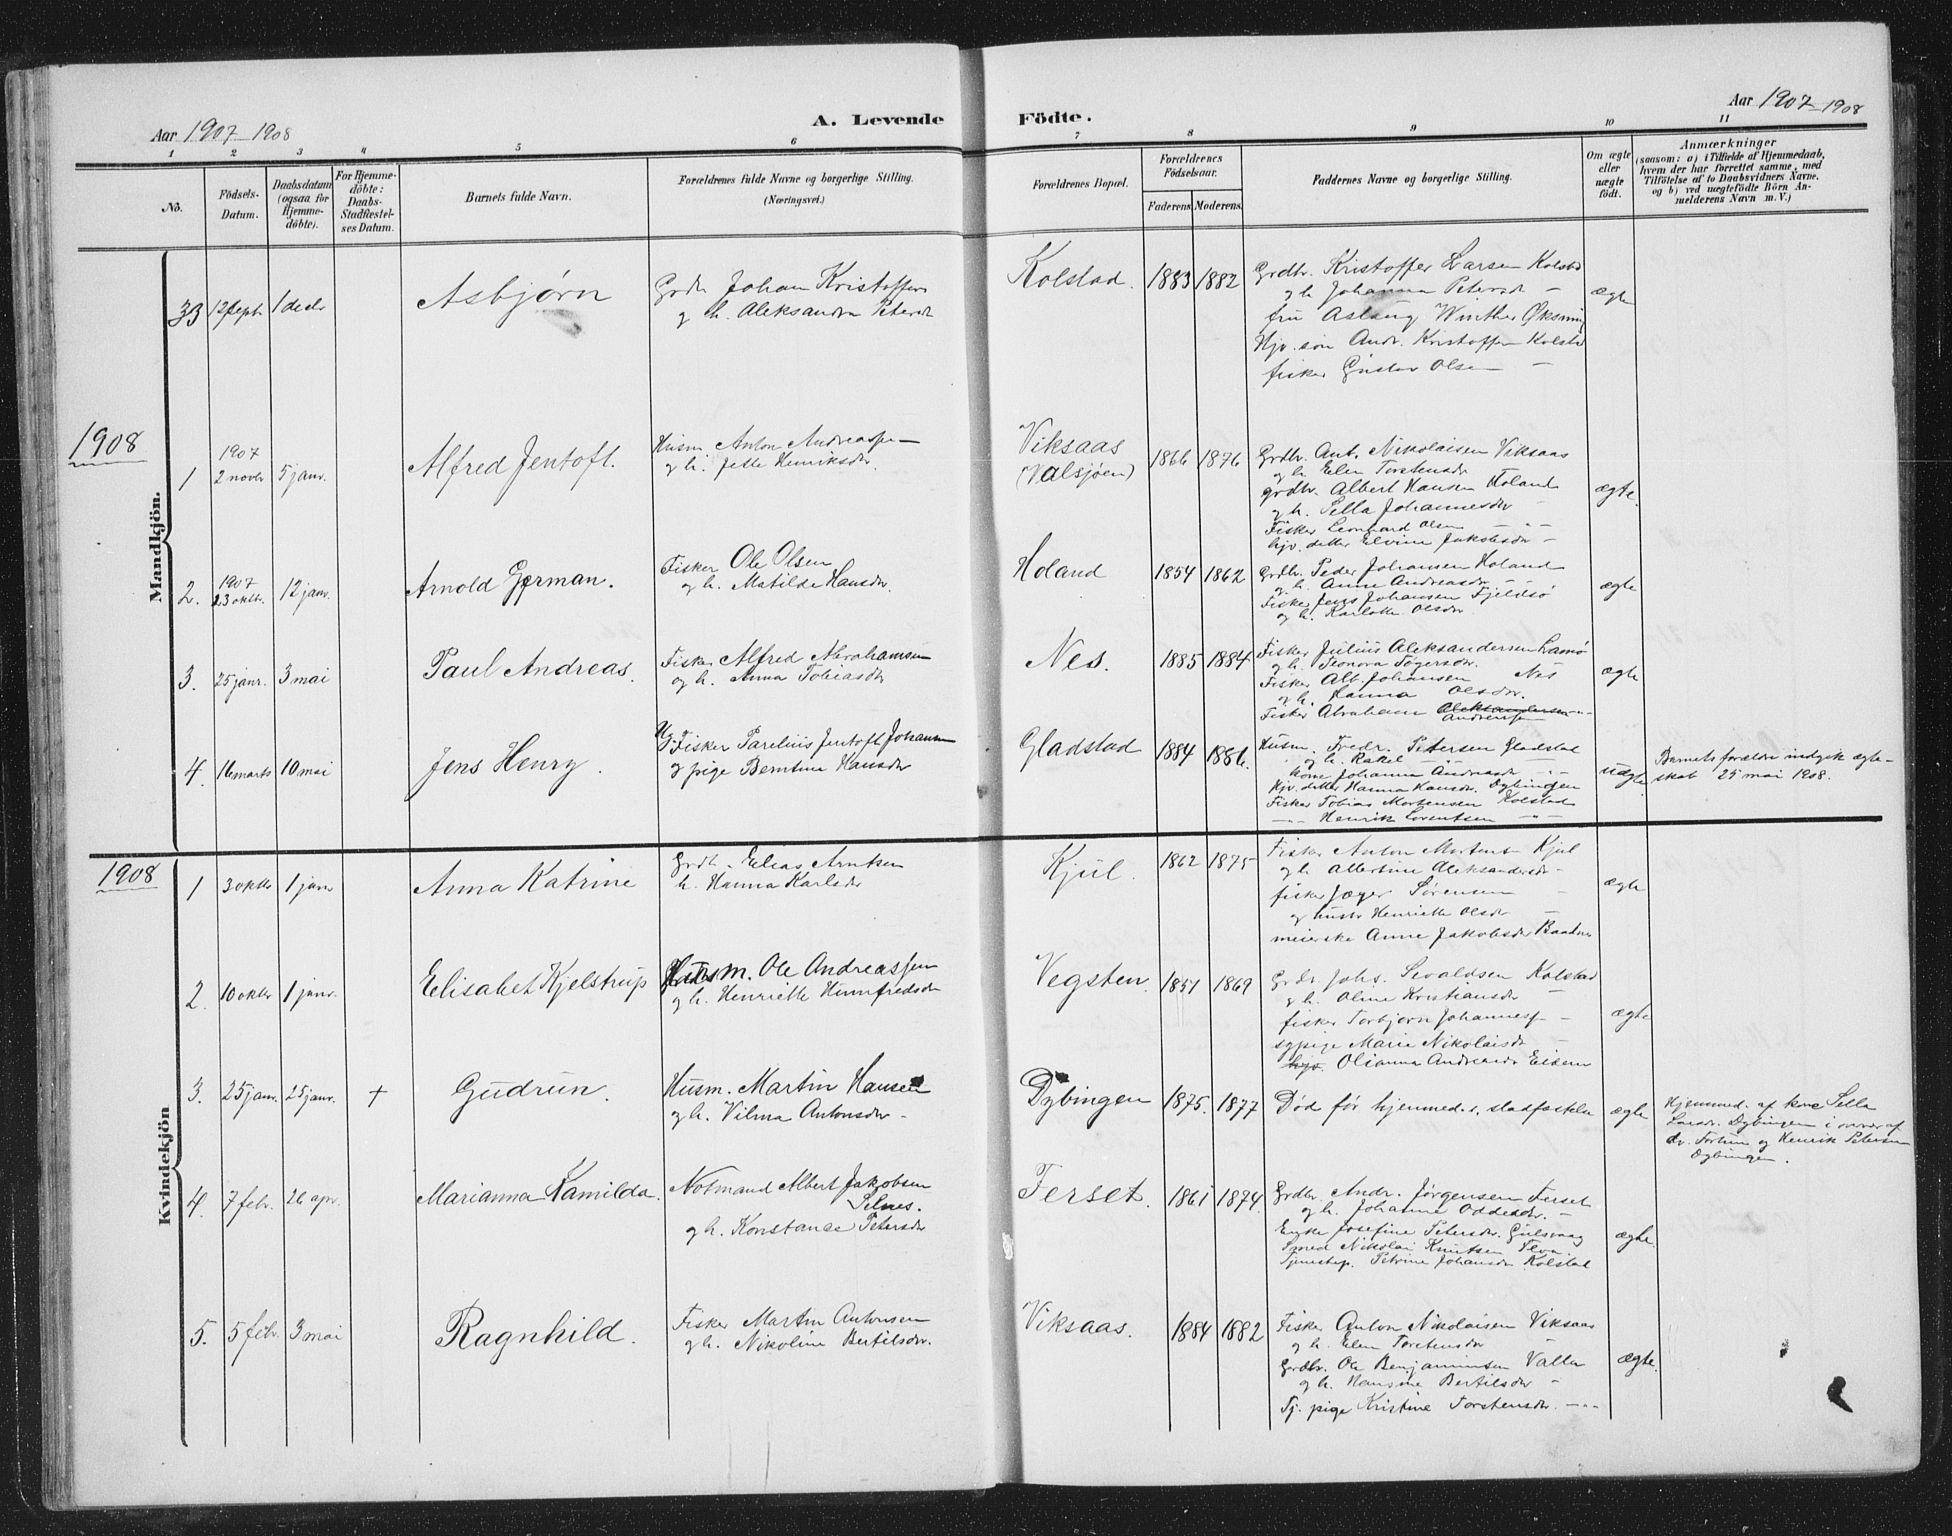 Aar 1907-1908
A. Levende
Födte.
Aar 1907-1908
1 2 3 4 5 6 7 8 9 10 11
No.
Födsels-
Datum.
Daabsdatum
(ogsaa for
Hjemme-
döbte).
For Hjemme-
döbte:
Daabs-
Stadfæstel-
ses Datum.
Barnets fulde Navn.
Forældrenes fulde Navne og borgerlige Stilling.
(Næringsvei.)
Forældrenes Bopæl.
Forældrenes
Födselsaar.
Faderens. Moderens.
Faddernes Navne og borgerlige Stilling.
Om ægte
eller
uægte
födt.
Anmærkninger
(saasom: a) i Tilfælde af Hjemmedaab,
hvem der har forrettet samme, med
Tilföielse af to Daabsvidners Navne.
og b) ved uægtefödte Börn An-
melderens Navn m. V.)
Mandkjön.
33 12 sept. 1 decbr
Asbjørn
Grdbr Johan Kristoffers
og h. Aleksandra Petersdr
Kolstad. 1883 1882
Grdbr. Kristoffer Larsen Kolstad
og h. Johanna Petersdr —
fru Aslaug Winther Øksning
Hjv. søn Andr. Kristoffersen Kolstad
fisker Gustav Olsen —
ægte
1908
1 1907
2 novbr 5 janr.
Alfred Jentoft.
Husm. Anton Andreassen
og h. Jette Henriksdr.
Viksaas
(Valsjøen)
1866 1876
Grdbr. Ant. Nikolaisen Viksaas
og h. Elen Torstensdr
grdbr. Albert Hansen Holand
og h. Sella Johannesdr —
Fisker Leonhard Olsen — " —
hjv. datter Elvine Jakobsdr —
ægte.
2. 1907
23 oktb. 12 janr.
Arnold German.
Fisker Ole Olsen
og h. Matilde Hansdr.
Holand 1854 1862
Grdbr. Peder Johansen Holand
og h. Anna Andreasdr — " —
Fisker Jens Johansen Fjeldsø
og h. Karlotte Olsdr.
ægte
3. 25 janr. 3 mai
Paul Andreas.
Fisker Alfred Abrahamsen
og h. Anna Tobiasdr
Nes. 1885 1884
Fisker Julius Aleksandersen
og h. Leonora
Fisker Alb. Johansen Nes
og h. Hanna Olsdr.
Fisker Abraham Aleksandersen — " —
Andreassen
ægte
4. 16 marts 10 mai
Jens Henry.
Ug. Fisker Parelius Jentoft Johansen
og pige Berntine Hansdr
Gladstad 1884 1886.
Husm. Fredr. Petersen Gladstad
og h. Rakel
kone Johanna Andreasdr
Hjv. datter Hanna Hansdr. Dybingen
Fisker Tobias Mortensen Kolstad
— " — Henrik Lorentsen — " —
uægte
Barnets forældre indgik ægte-
skab 25 mai 1908.
Kvindekjön
1908
1 3 oktbr 1 janr
Anna Katrine
Grdb. Elias Arntsen
h. Hanna Karlsdr
Kjul. 1862 1875
Fisker Anton Mortens. Kjul
og h. Albertine Aleksandersdr —
fisker Jæger Sørensen —
og hustr Henriette Olsdr —
meierske Anne Jakobsdr
ægte
2. 10 oktbr 1 janr.
Elisabet Kjelstrup
Husm. Ole Andreassen
og h. Henriette Humfredsdr
Vegsten. 1857 1869
Grdbr Johs. Sevaldsen Kolstad
og h. Oline Kristiansdr —
fisker Torbjørn Johanness. —
sypige Marie Nikolaisdr —
hjv. Olianna Andreasdr
ægte
3. 25 janr. 25 janr. +
Gudrun.
Husm. Martin Hansen
og h. Vilma Antonsdr —
Dybingen 1875. 1877
Død før hjemmed.s. stadfæstelse
ægte
Hjemmed. af kone Sella
Larsdr. Dybingen i overvær af
dr. Tortine og Henrik Petersen
Dybingen.
4. 7 febr. 26 apr.
Marianna Kamilda.
Notmand Albert Jakobsen
Selnes.
og h. Konstance Petersdr
Ferset. 1861 1874.
Grdbr. Andr. Jørgensen Ferset
og h. Johanna Oddesdr. —
Enke Josefine Petersdr. Gulsvaag
Smed Nikolai Knutsen
Tjenestep. Petrine Johansdr Kolstad
ægte.
5. 5 febr. 3 mai
Ragnhild.
Fisker Martin Antonsen
og h. Nikoline Bertilsdr.
Viksaas. 1884 1882
Fisker Anton Nikolaisen Viksaas
og h. Elen Torstensdr —
Grdbr. Ole Benjaminsen Valla
og h. Hansine Bertilsdr —
Tj. pige Kristine Torstensdr. — " —
ægte.